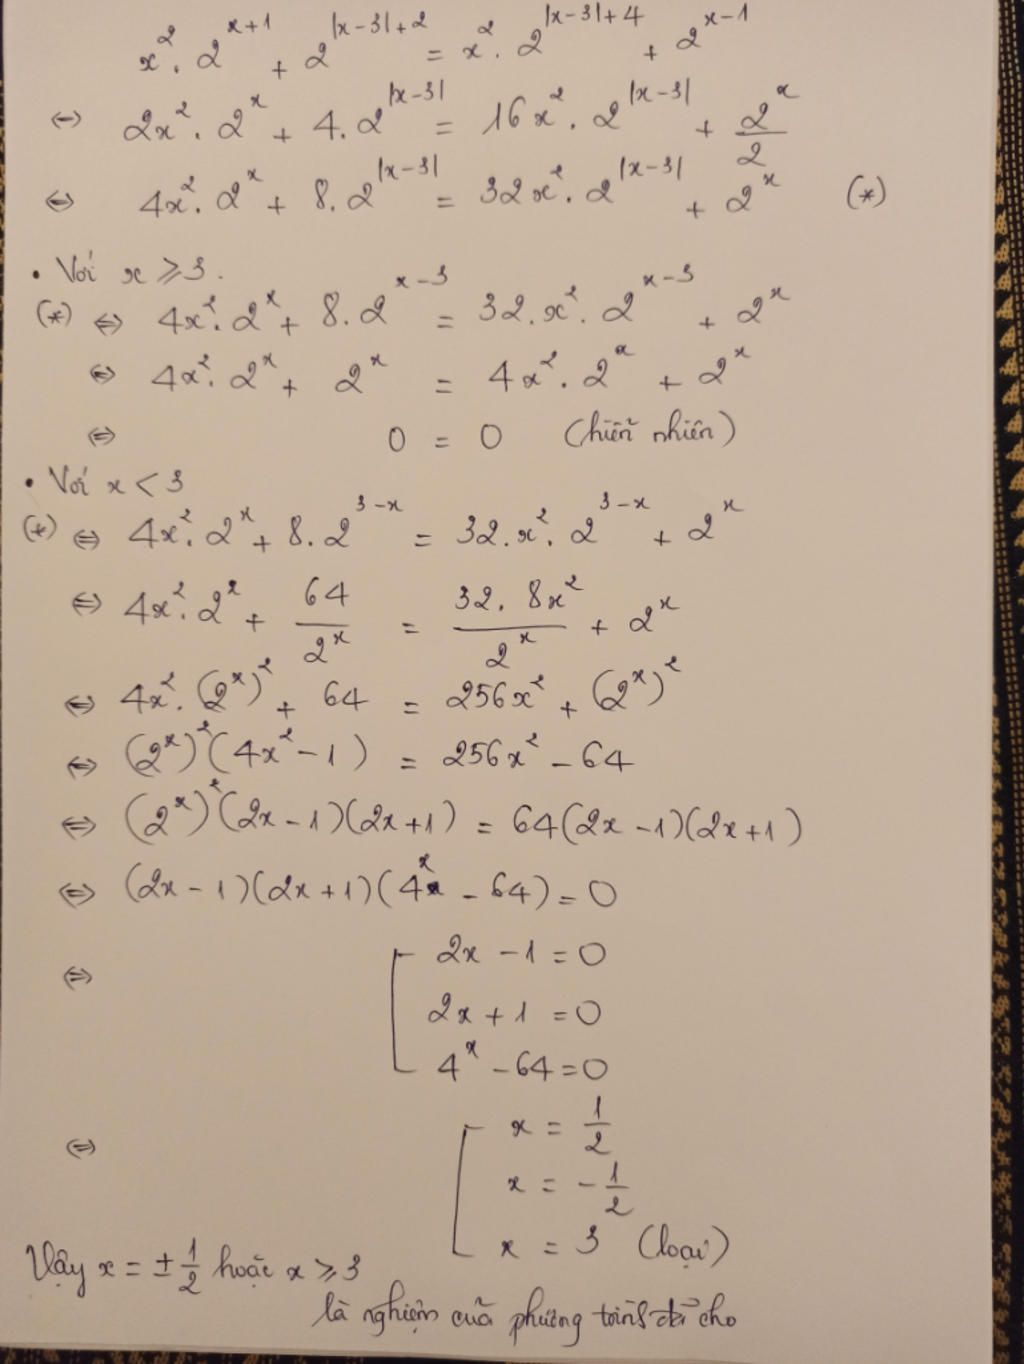 x². 2^(x+1) + 2^(|x-3|+2) = x². 2^(|x-3|+4) + 2^(x-1)
⇔ 2x². 2^x + 4. 2^|x-3| = 16x². 2^|x-3| + 2^x/2
⇔ 4x². 2^x + 8. 2^|x-3| = 32x². 2^|x-3| + 2^x (*)
• Với x ⩾ 3.
(*) ⇔ 4x². 2^x + 8. 2^(x-3) = 32. x². 2^(x-3) + 2^x
⇔ 4x². 2^x + 2^x = 4x². 2^x + 2^x
⇔ 0 = 0 (hiển nhiên)
• Với x < 3
(*) ⇔ 4x². 2^x + 8. 2^(3-x) = 32. x². 2^(3-x) + 2^x
⇔ 4x². 2^x + 64/2^x = 32. 8x²/2^x + 2^x
⇔ 4x². (2^x)² + 64 = 256x² + (2^x)²
⇔ (2^x)² (4x² - 1) = 256x² - 64
⇔ (2^x)² (2x - 1)(2x + 1) = 64(2x - 1)(2x + 1)
⇔ (2x - 1)(2x + 1)(4^x - 64) = 0
⇔ [ 2x - 1 = 0
2x + 1 = 0
4^x - 64 = 0
⇔ [ x = 1/2
x = -1/2
x = 3 (loại)
Vậy x = ± 1/2 hoặc x ⩾ 3
là nghiệm của phương trình đã cho